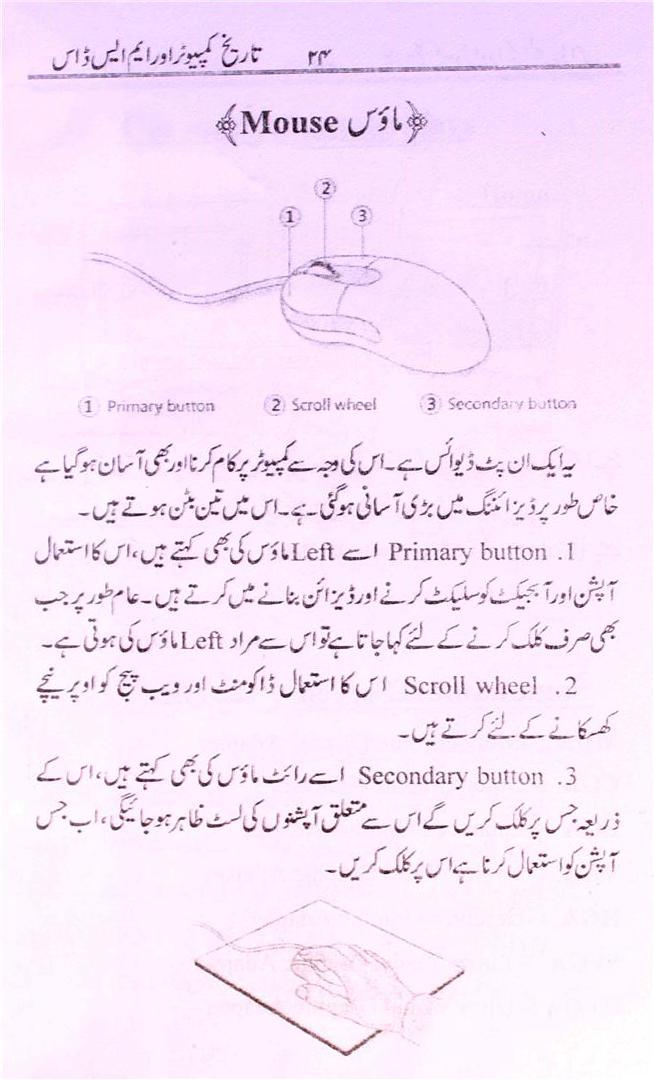 تاریخ کمپیوٹر اور ایم ایس ڈاس ۲۴
ماؤس Mouse
2
1 3
1 Primary button 2 Scroll wheel 3 Secondary button
یہ ایک ان پٹ ڈیوائس ہے۔ اس کی وجہ سے کمپیوٹر پر کام کرنا اور بھی آسان ہو گیا ہے
خاص طور پر ڈیزائننگ میں بڑی آسانی ہو گئی ہے۔ اس میں تین بٹن ہوتے ہیں۔
1. Primary button اسے Left ماؤس کی بھی کہتے ہیں، اس کا استعمال
آپشن اور آبجیکٹ کو سلیکٹ کرنے اور ڈیزائن بنانے میں کرتے ہیں۔ عام طور پر جب
بھی صرف کلک کرنے کے لئے کہا جاتا ہے تو اس سے مراد Left ماؤس کی ہوتی ہے۔
2. Scroll wheel اس کا استعمال ڈاکومنٹ اور ویب پیج کو اوپر نیچے
کھسکانے کے لئے کرتے ہیں۔
3. Secondary button اسے رائٹ ماؤس کی بھی کہتے ہیں، اس کے
ذریعہ جس پر کلک کریں گے اس سے متعلق آپشنوں کی لسٹ ظاہر ہو جائیگی، اب جس
آپشن کو استعمال کرنا ہے اس پر کلک کریں۔